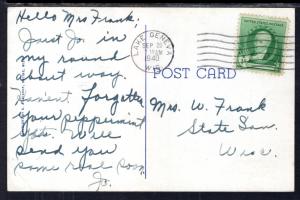 Hello Mrs Frank;
Just Jo. in
my round
about way.
Haven't forgotten
your peppermint
yds. Will
send you
some real soon.
Jo.
LAKE GENEVA
SEP 25
11 AM
1940
WIS.
UNITED STATES POSTAGE
POST CARD
Mrs. W. Frank
State San.
Wisc.